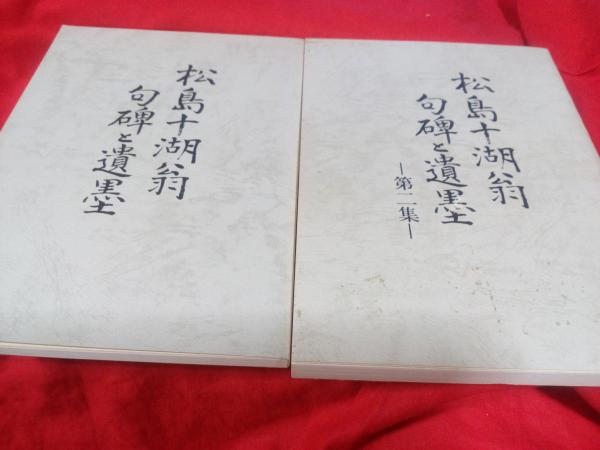 松島十湖翁
句碑と遺墨
松島十湖翁
句碑と遺墨
―第二集―